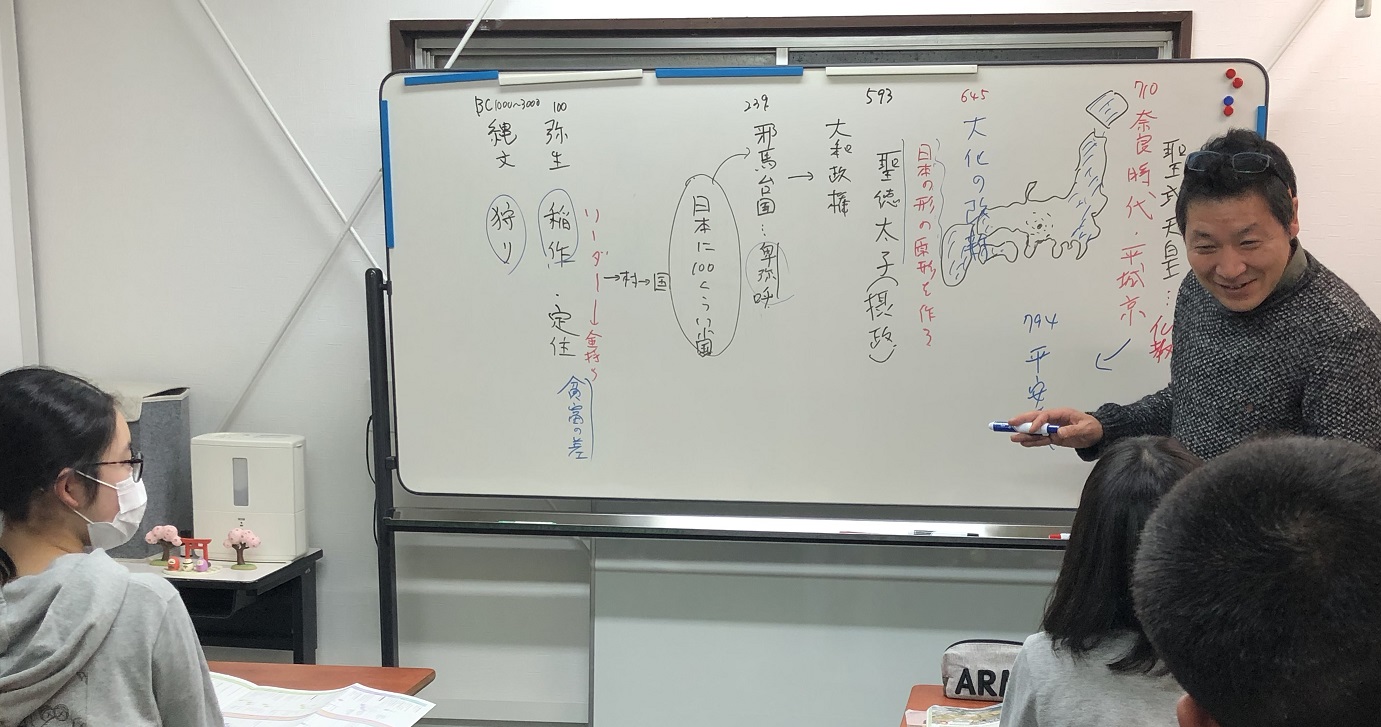 BC1000~3000
縄文
狩り
100
弥生
稲作・定住
リーダー→金持ち
貧富の差
→村→国
日本に100くらい小国
239
邪馬台国…卑弥呼
→
大和政権
593
聖徳太子(摂政)
日本の形の原形を作る
645
大化の改新
710
奈良時代・平城京
聖武天皇…仏教
794
平安
ARM